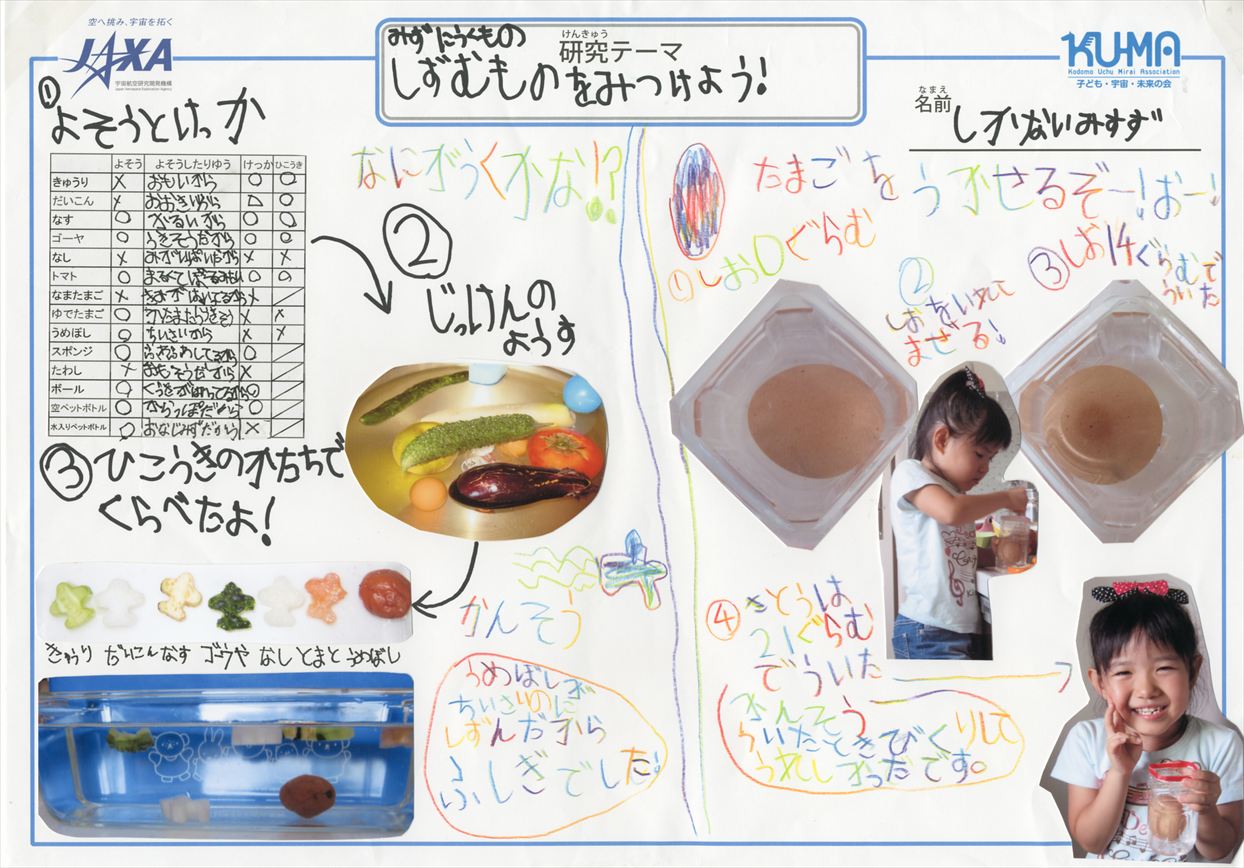 空へ挑み、宇宙を拓く
JAXA
宇宙航空研究開発機構
Japan Aerospace Exploration Agency
みずにうくもの
けんきゅう
研究テーマ
しずむものをみつけよう!
KU-MA
Kodomo Uchu Mirai Association
子ども・宇宙・未来の会
なまえ
名前
しかないみすず
①
よそうとけっか
よそう よそうしたりゆう けっか ひこうき
きゅうり × おもいから ○ ○
だいこん × おおきいから △ ○
なす ○ かるいから ○ ○
ゴーヤ ○ うきそうだから ○ ○
なし × みがいっぱいだから × ×
トマト ○ まるくて ○ ○
なまたまご × ×
ゆでたまご ○ × ×
うめぼし ○ ちいさいから × ×
スポンジ ○ ○
たわし × おもそうだから ×
ボール ○ くうきがはいってるから ○
空ペットボトル ○ からっぽだから ○
水入りペットボトル ○ おなじみずだから ×
なにがうくかな!?
②
じっけんの
ようす
③ひこうきのかたちで
くらべたよ!
きゅうり だいこん なす ゴウヤ なし とまと うめぼし
かんそう
うめぼしが
ちいさいのに
しずんだから
ふしぎでした!
たまごをうかせるぞー!おー!
①しお0ぐらむ
②
しおをいれて
まぜる!
③しお14ぐらむで
ういた
④さとうは
21ぐらむ
でういた
かんそう
ういたときびっくりして
うれしかったです。